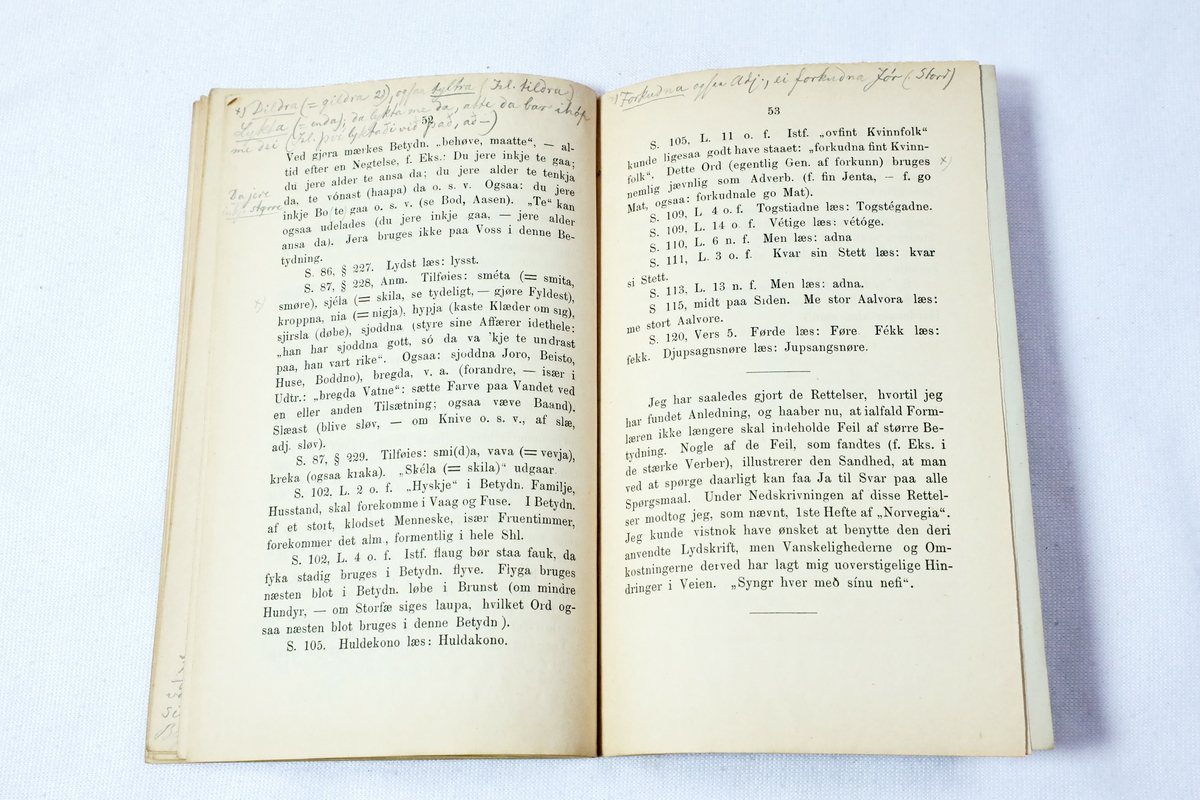 x) Dildra (= gildra 2)), ogsaa tyltra (Isl. tildra)
Lykta (= enda); da lykta me da, atte da bar ihop
me dei (Isl. því lyktaði við það, að—)
52
Ved gjera mærkes Betydn. „behøve, maatte“, — al-
tid efter en Negtelse, f. Eks.: Du jere inkje te gaa;
du jere alder te ansa da; du jere alder te tenkja
da, te vónast (haapa) da o. s. v. Ogsaa: du jere
inkje Bo te gaa o. s. v. (se Bod, Aasen). „Te“ kan
ogsaa udelades (du jere inkje gaa, — jere alder
ansa da). Jera bruges ikke paa Voss i denne Be-
tydning.
Da jere
styrre
S. 86, § 227. Lydst læs: lysst.
S. 87, § 228, Anm. Tilføies: sméta (= smita,
x)
smøre), sjéla (= skila, se tydeligt, — gjøre Fyldest),
kroppna, nia (= nigja), hypja (kaste Klæder om sig),
sjirsla (døbe), sjoddna (styre sine Affærer idethele:
„han har sjoddna gott, só da va 'kje te undrast
paa, han vart rike“. Ogsaa: sjoddna Joro, Beisto,
Huse, Boddno), bregda, v. a. (forandre, — især i
Udtr.: „bregda Vatne“: sætte Farve paa Vandet ved
en eller anden Tilsætning; ogsaa væve Baand).
Slæast (blive sløv, — om Knive o. s. v., af slæ,
adj. sløv).
S. 87, § 229. Tilføies: smi(d)a, vava (= vevja),
kreka (ogsaa kraka). „Skéla (= skila)“ udgaar
S. 102, L. 2 o. f. „Hyskje“ i Betydn. Familje,
Husstand, skal forekomme i Vaag og Fuse. I Betydn.
af et stort, klodset Menneske, især Fruentimmer,
forekommer det alm, formentlig i hele Shl.
S. 102, L. 4 o. f. Istf. flaug bør staa fauk, da
fyka stadig bruges i Betydn. flyve. Flyga bruges
næsten blot i Betydn. løbe i Brunst (om mindre
Hundyr, — om Storfæ siges laupa, hvilket Ord og-
saa næsten blot bruges i denne Betydn ).
S. 105. Huldekono læs: Huldakono.
x) Forkudna ogsaa Adj., ei forkudna Jór (Stord)
53
S. 105, L. 11 o. f. Istf. „ovfint Kvinnfolk“
kunde ligesaa godt have staaet: „forkudna fint Kvinn-
folk“. Dette Ord (egentlig Gen. af forkunn) bruges x)
nemlig jævnlig som Adverb. (f. fin Jenta, — f. go
Mat, ogsaa: forkudnale go Mat).
S. 109, L 4 o. f. Togstiadne læs: Togstégadne.
S. 109, L. 14 o f. Vétige læs: vétóge.
S. 110, L. 6 n. f. Men læs: adna
S. 111, L. 3 o. f. Kvar sin Stett læs: kvar
si Stett.
S. 113, L. 13 n. f. Men læs: adna.
S 115, midt paa Siden. Me stor Aalvora læs:
me stort Aalvore.
S. 120, Vers 5. Førde læs: Føre. Fékk læs:
fekk. Djupsagnsnøre læs: Jupsangsnøre.
Jeg har saaledes gjort de Rettelser, hvortil jeg
har fundet Anledning, og haaber nu, at ialfald Form-
læren ikke længere skal indeholde Feil af større Be-
tydning. Nogle af de Feil, som fandtes (f. Eks. i
de stærke Verber), illustrerer den Sandhed, at man
ved at spørge daarligt kan faa Ja til Svar paa alle
Spørgsmaal. Under Nedskrivningen af disse Rettel-
ser modtog jeg, som nævnt, 1ste Hefte af „Norvegia“.
Jeg kunde vistnok have ønsket at benytte den deri
anvendte Lydskrift, men Vanskelighederne og Om-
kostningerne derved har lagt mig uoverstigelige Hin-
dringer i Veien. „Syngr hver með sínu nefi“.